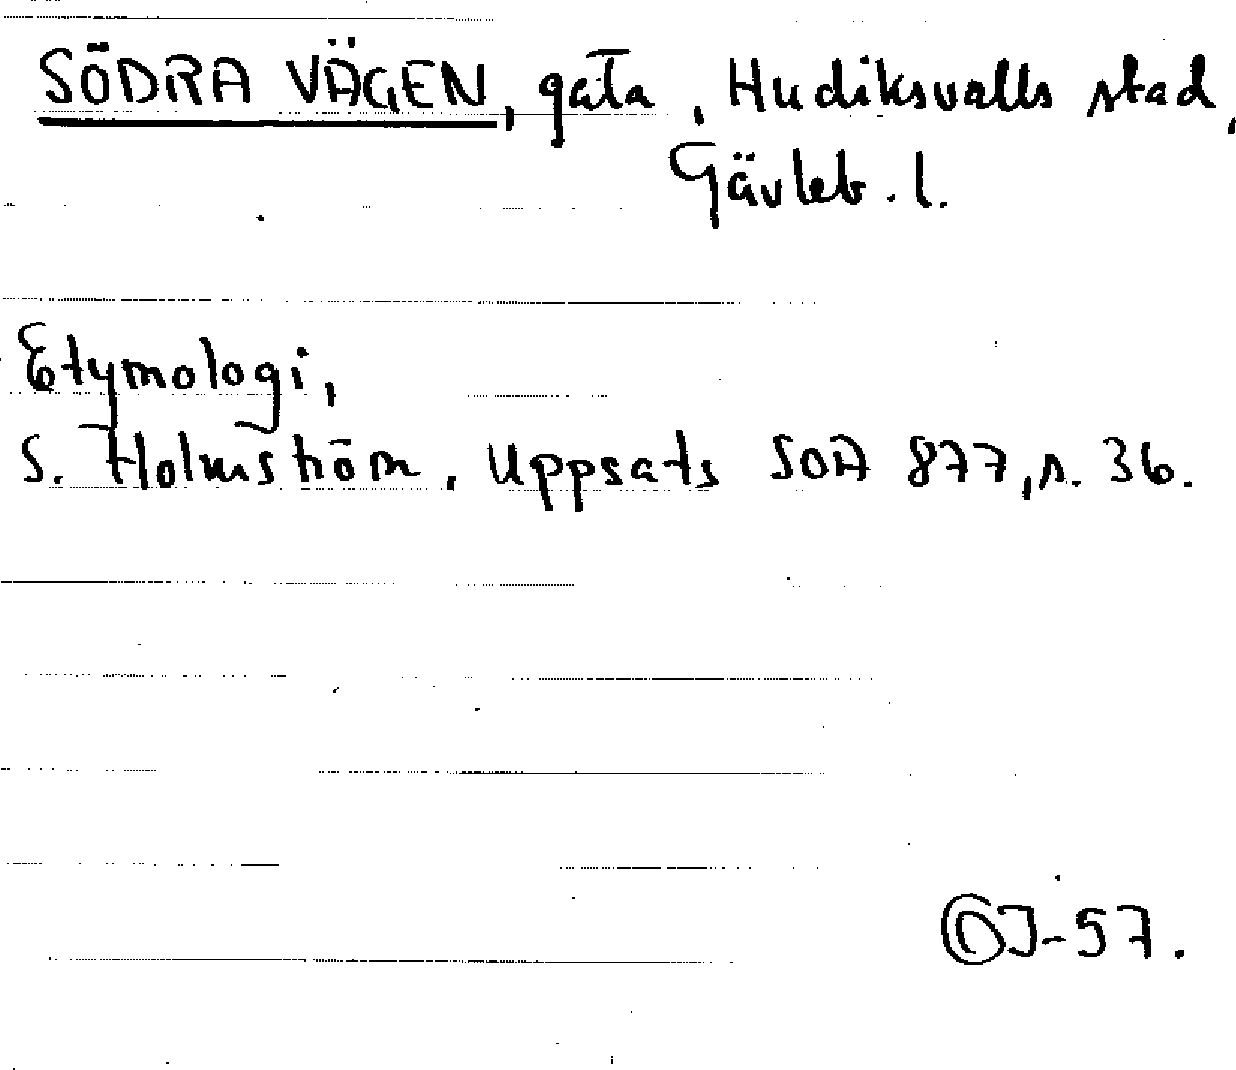 SÖDRA VÄGEN, gata, Hudiksvalls stad,
Gävleb. l.
Etymologi,
S. Holmström. Uppsats SOA 877, s. 36.
OJ-57.